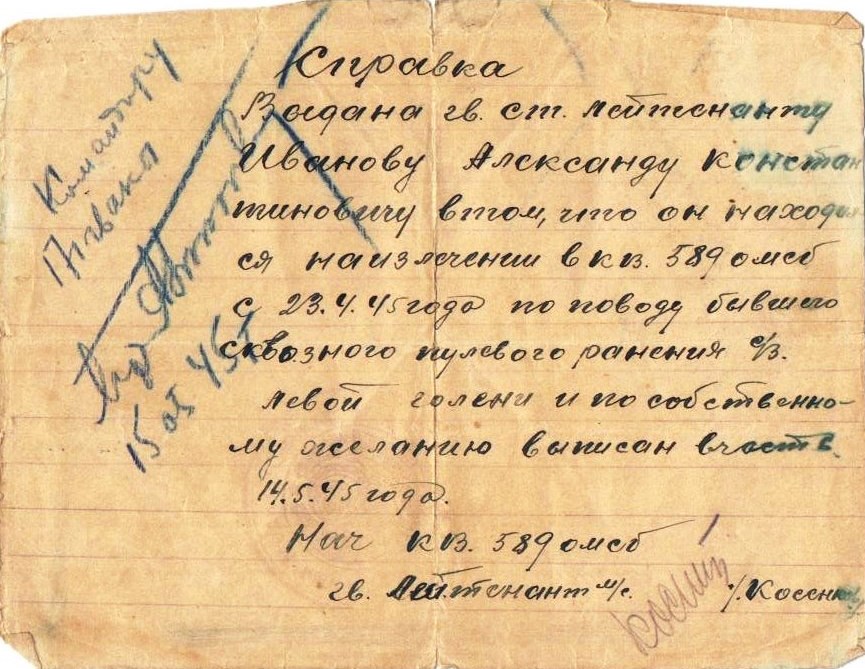 Справка
Вадана гв. ст. лейтенанту
Иванову Александу Констан
тиновичу в том, что он находил
ся на излечении в кв. 589 омсб
с 23.4.45 года по поводу бывшего
сквозного пулевого ранения с/з.
левой голени и по собственно-
му желанию выписан в часть
14.5.45 года.
Нач кв. 589 омсб
гв. Лейтенант м/с. /. Косенко
Командиру
15 05 45 г